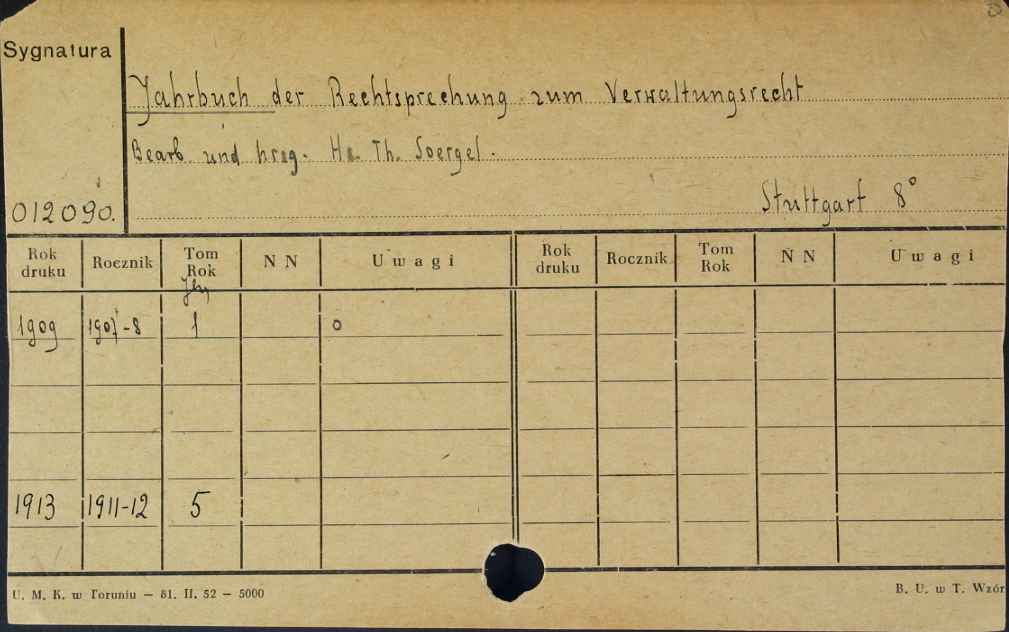 Sygnatura
Jahrbuch der Rechtsprechung zum Verwaltungsrecht
Bearb. und hrsg. Hs. Th. Soergel.
012090.
Stuttgart 8°
Rok druku Rocznik Tom Rok N N Uwagi Rok druku Rocznik Tom Rok N N Uwagi
Jhg
1909 1907-8 1 o
1913 1911-12 5
U. M. K. w Toruniu — 81. II. 52 — 5000
B. U. w T. Wzór